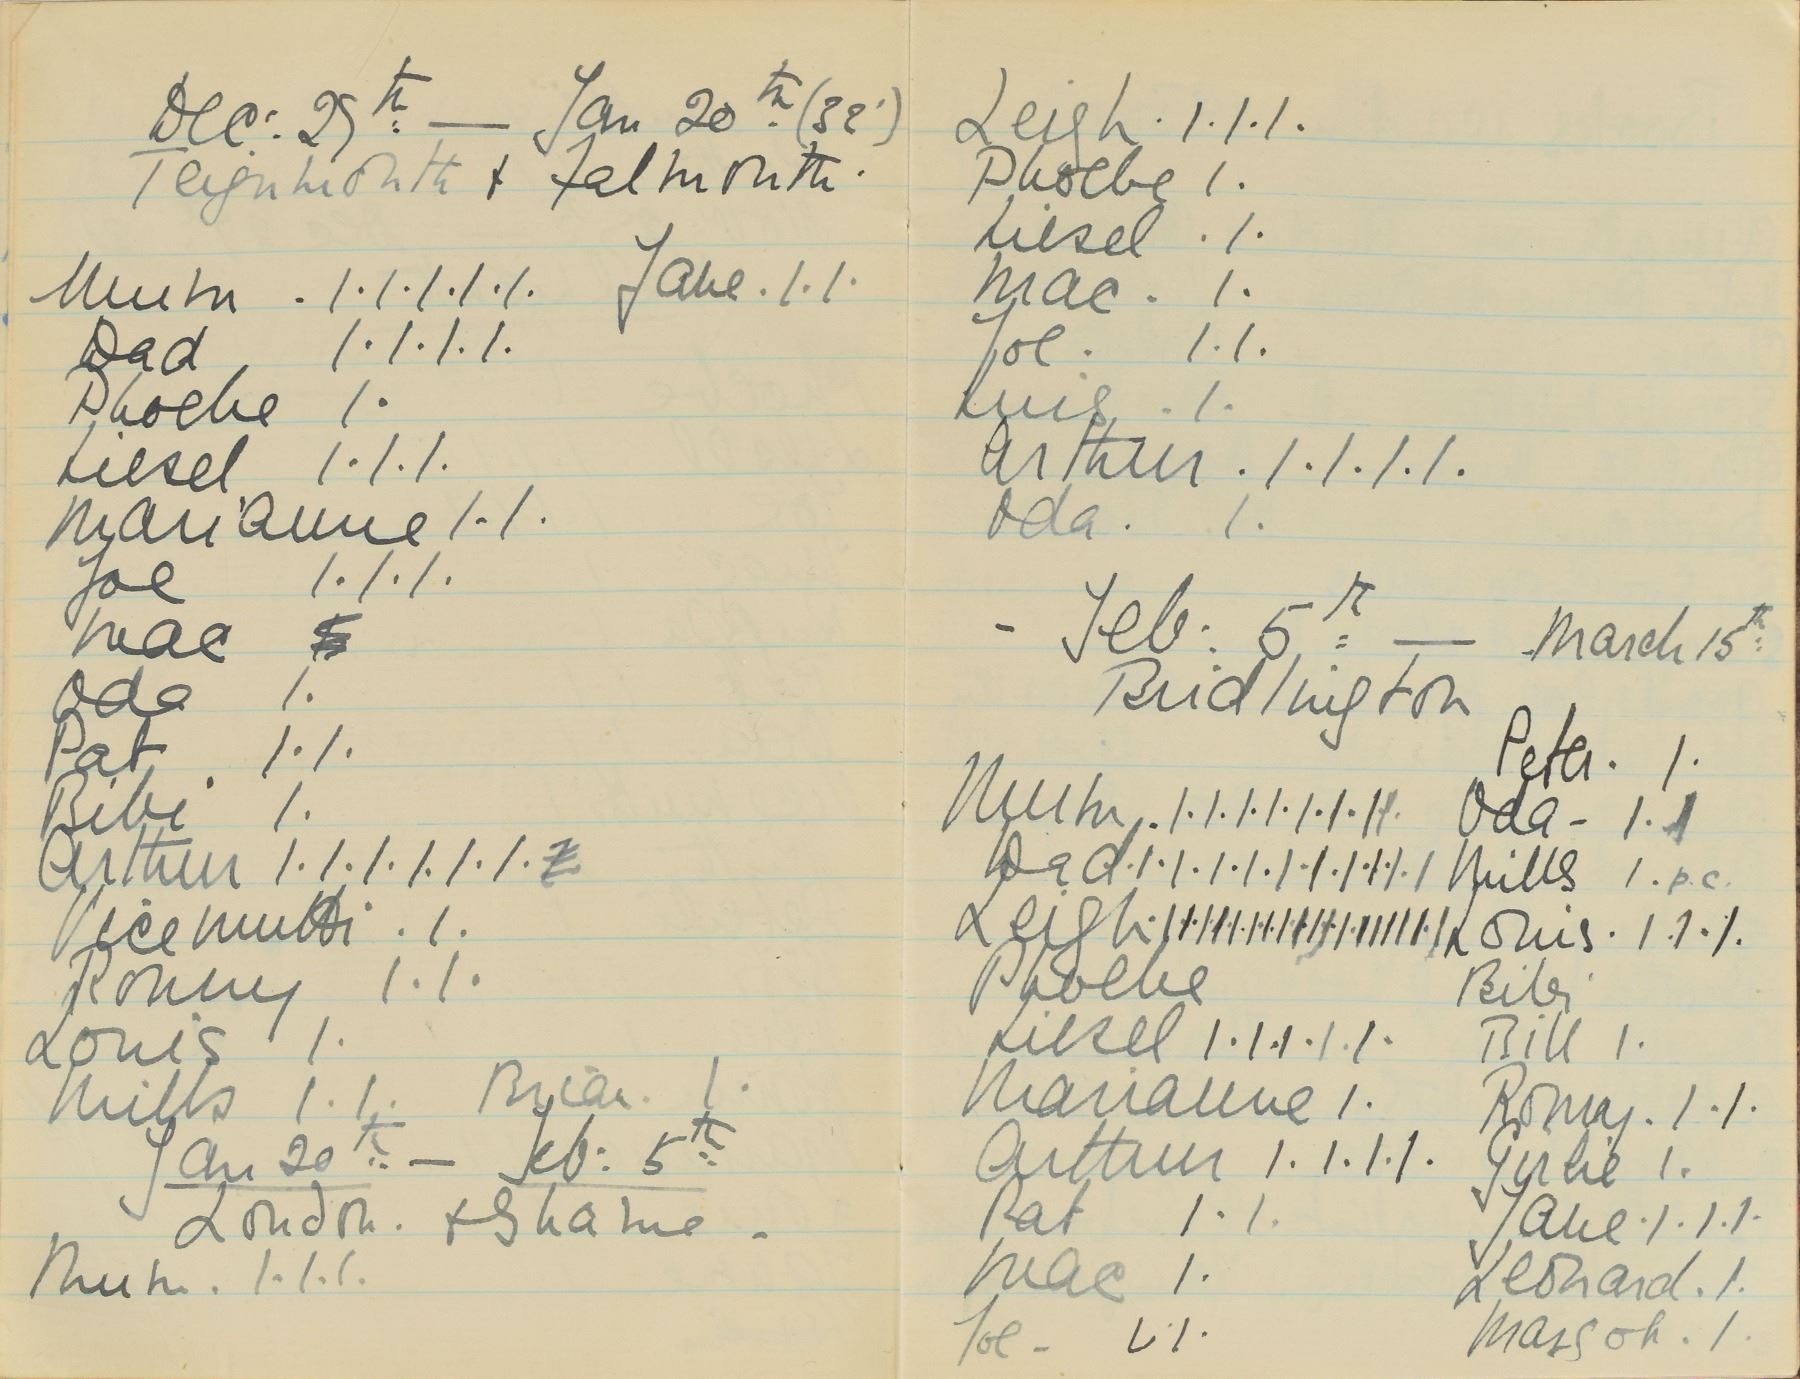 Dec: 29th — Jan 20th (32')
Teignmouth + Falmouth.
Mum . 1.1.1.1.1. Jane . 1.1.
Dad 1.1.1.1.
Phoebe 1.
Liesel 1.1.1.
Marianne 1.1.
Joe 1.1.1.
Mac
Oda 1.
Pat . 1.1.
Bibi 1.
Arthur 1.1.1.1.1.1.
Vicemutti . 1.
Romney 1.1.
Louis 1.
Mills 1.1. Brian. 1.
Jan 20th — Feb: 5th
London. + Shame -
Mum. 1.1.1.
Leigh . 1.1.1.
Phoebe 1.
Liesel . 1.
Mac . 1.
Joe . 1.1.
Luis . 1.
Arthur . 1.1.1.1.
Oda . 1.
- Feb: 5th — March 15th
Bridlington
Peter . 1.
Mum . 1.1.1.1.1.1.11. Oda - 1.1
Dad.1.1.1.1.1.1.1.1.1.1 Mills 1. p.c.
Leigh Louis . 1.1.1.
Phoebe Bibi
Liesel 1.1.1.1.1. Bill 1.
Marianne 1. Romy . 1.1.
Arthur 1.1.1.1. Gerbie 1.
Pat 1.1. Jane . 1.1.1.
Mac 1. Leonard . 1.
Joe - 1.1. Margot . 1.